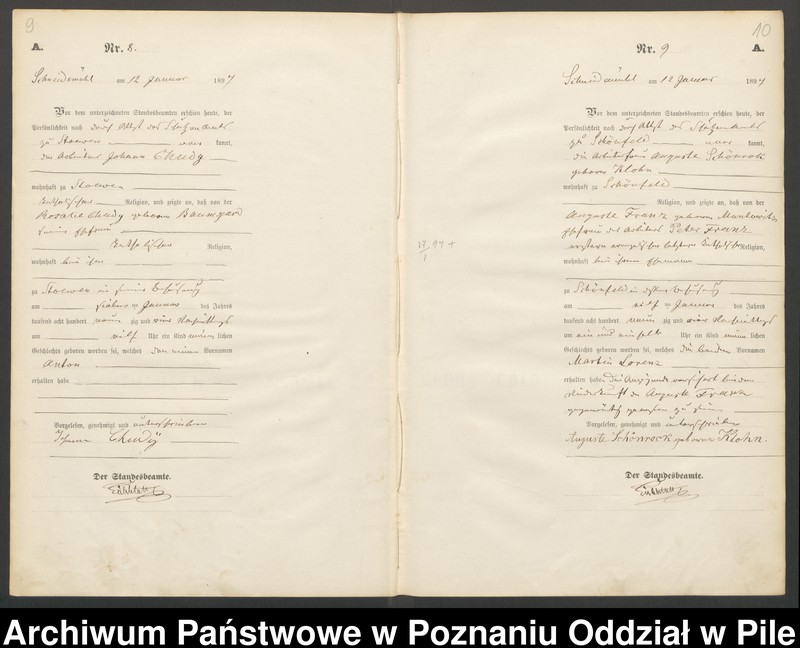 9
A.
Nr. 8.
Schneidemühl am 12 Januar 1897
Vor dem unterzeichneten Standesbeamten erschien heute, der
Persönlichkeit nach durch Attest des Schulzenamts
zu Stoewen kannt,
der Arbeiter Johann Chudy
wohnhaft zu Stoewen
katholischer Religion, und zeigte an, daß von der
Rosalie Chudy geborene Baumgard
seiner Ehefrau
katholischer Religion,
wohnhaft bei ihm
zu Stoewen in seiner Behausung
am sieben ten Januar des Jahres
tausend acht hundert neun zig und Vormittags
um elf Uhr ein Kind männlichen
Geschlechts geboren worden sei, welches den einen Vornamen
Anton
erhalten habe
Vorgelesen, genehmigt und unterschrieben
Johann Chudÿ
Der Standesbeamte.
10
Nr. 9
A.
Schneidemühl am 12 Januar 1897
Vor dem unterzeichneten Standesbeamten erschien heute, der
Persönlichkeit nach durch Attest des Schulzenamts
zu Schönfeld kannt,
die Arbeiterfrau Auguste Schönrock
geborene Klohn
wohnhaft zu Schönfeld
Religion, und zeigte an, daß von der
Auguste Franz geborene
Ehefrau des Arbeiters Peter Franz
erstere evangelischer letzterer katholischer Religion,
wohnhaft bei ihrem Ehemann
zu Schönfeld in dessen Behausung
am elften Januar des Jahres
tausend acht hundert neun zig und Vormittags
um ein Uhr ein Kind männlichen
Geschlechts geboren worden sei, welches die beiden Vornamen
Martin Lorenz
erhalten habe. Die Anzeigende versichert bei der
Niederkunft der Auguste Franz
gegenwärtig gewesen zu sein
Vorgelesen, genehmigt und unterschrieben
Auguste Schönrock geborene Klohn.
Der Standesbeamte.
Archiwum Państwowe w Poznaniu Oddział w Pile